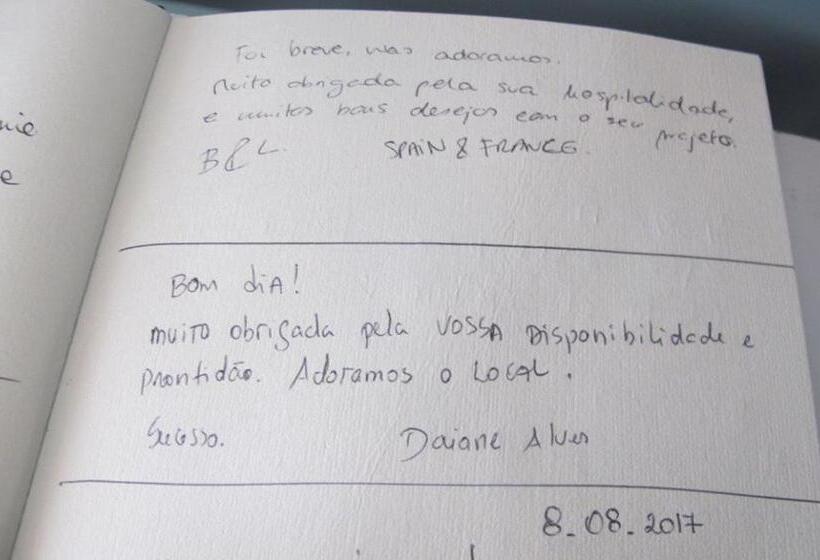 nie
e
Foi breve, mas adoramos.
Muito obrigada pela sua hospitalidade,
e muitos bons desejos com o seu projeto.
B & L. SPAIN & FRANCE.
Bom diA!
muito obrigada pela vossa Disponibilidade e
prontidão. Adoramos o Local.
Sucesso. Daiane Alves
8-08-2017